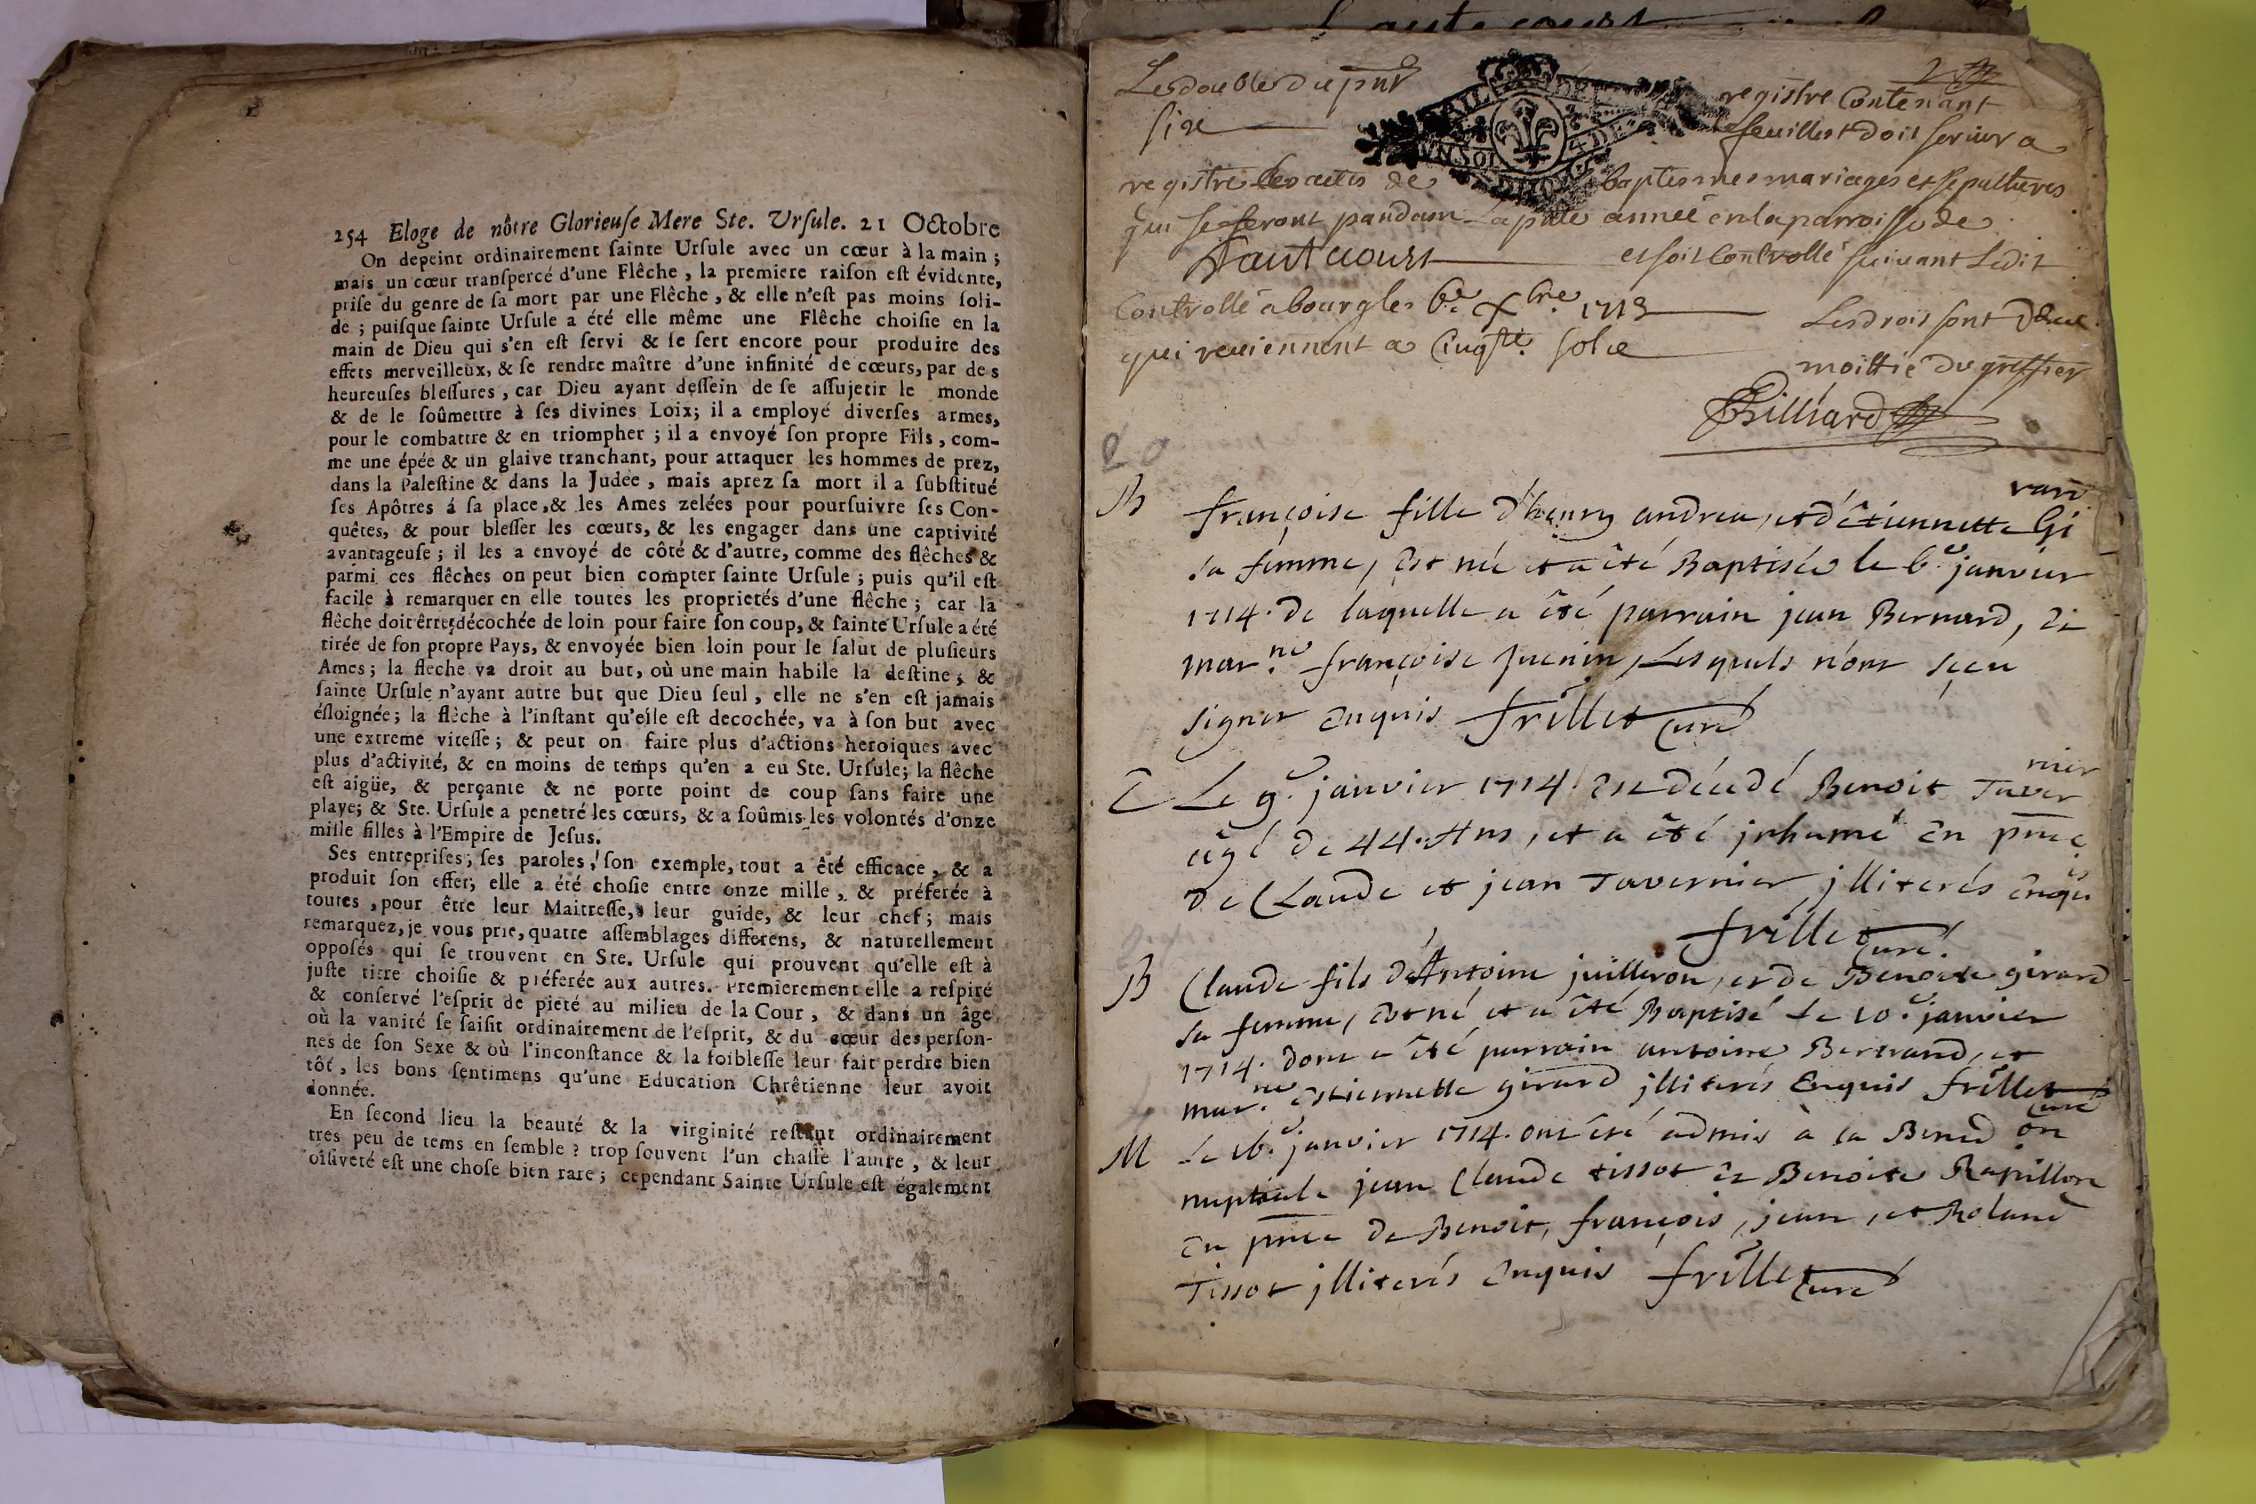 254 Eloge de nôtre Glorieuſe Mere Ste. Urſule. 21 Octobre
On depeint ordinairement ſainte Urſule avec un cœur à la main ;
mais un cœur tranſpercé d'une Flêche , la premiere raiſon eſt évidente,
priſe du genre de ſa mort par une Flêche , & elle n'eſt pas moins ſoli-
de ; puiſque ſainte Urſule a été elle même une Flêche choiſie en la
main de Dieu qui s'en eſt ſervi & ſe ſert encore pour produire des
effets merveilleux, & ſe rendre maître d'une infinité de cœurs, par des
heureuſes bleſſures , car Dieu ayant deſſein de ſe aſſujetir le monde
& de le ſoûmettre à ſes divines Loix; il a employé diverſes armes,
pour le combattre & en triompher ; il a envoyé ſon propre Fils , com-
me une épée & un glaive tranchant, pour attaquer les hommes de prez,
dans la Paleſtine & dans la Judée , mais aprez ſa mort il a ſubſtitué
ſes Apôtres á ſa place ,& les Ames zelées pour pourſuivre ſes Con-
quêtes, & pour bleſſer les cœurs, & les engager dans une captivité
avantageuſe ; il les a envoyé de côté & d'autre, comme des flêches &
parmi ces flêches on peut bien compter ſainte Urſule ; puis qu'il eſt
facile à remarquer en elle toutes les proprietés d'une flêche ; car la
flêche doit être décochée de loin pour faire ſon coup, & ſainte Urſule a été
tirée de ſon propre Pays, & envoyée bien loin pour le ſalut de pluſieurs
Ames ; la fleche va droit au but, où une main habile la deſtine ; &
ſainte Urſule n'ayant autre but que Dieu ſeul , elle ne s'en eſt jamais
éſloignée; la flèche à l'inſtant qu'elle eſt decochée, va à ſon but avec
une extreme viteſſe ; & peut on faire plus d'actions heroiques avec
plus d'activité, & en moins de temps qu'en a eu Ste. Urſule; la flêche
eſt aigüe, & perçante & ne porte point de coup ſans faire une
playe; & Ste. Urſule a penetré les cœurs, & a ſoûmis les volontés d'onze
mille filles à l'Empire de Jeſus.
Ses entrepriſes, ſes paroles, ſon exemple, tout a êté efficace , & a
produit ſon effet; elle a été choſie entre onze mille , & préferée à
toutes , pour être leur Maitreſſe, leur guide, & leur chef; mais
remarquez, je vous prie, quatre aſſemblages differens, & naturellement
oppoſés qui ſe trouvent en Ste. Urſule qui prouvent qu'elle eſt à
juſte titre choiſie & préferée aux autres. Premierement elle a reſpiré
& conſervé l'eſprit de pieté au milieu de la Cour , & dans un âge
où la vanité ſe ſaiſit ordinairement de l'eſprit, & du cœur des perſon-
nes de ſon Sexe & où l'inconſtance & la foibleſſe leur fait perdre bien
tôt , les bons ſentimens qu'une Education Chrêtienne leur avoit
donnée.
En ſecond lieu la beauté & la virginité reſtant ordinairement
tres peu de tems en ſemble ? trop ſouvent l'un chaſſe l'autre , & leur
oiſiveté eſt une choſe bien rare ; cependant Sainte Urſule eſt également
Les double du pnt registre Contenant
sixe feuillet doit servir a
registre les actes de baptesmes mariages et sepultures
qui se feront pandant la pnte année en la parroisse de
et soit Controllé suivant Ledit
Controllé a bourg les 6e xbre. 1713 Les drois sont deux
qui reviennent a Cinqte. solz moittié du greffier
B françoise fille d'henry andrea, et d'étiennette Gi
vard
sa femme, est née et a été Baptisée le 6.e janvier
1714. de laquelle a été parrain jean Bernard, et
mar.ne françoise Juenin, Lesquels n'ont sçeu
signer enquis frillet curé
Le 9.e janvier 1714. est décedé Benoit Taver
nier
agé de 44. Ans, et a été jnhumé en pnce
de Claude et jean Tavernier jlliterés enqu
is
frillet curé.
B Claude fils d'Antoine juilleron, et de Benoite girard
sa femme, est né et a été Baptisé Le 10.e janvier
1714. dont a été parrain antoine Bertrand, et
mar.ne estiennette girard jlliterés Enquis frillet curé
M Le 16.e janvier 1714. ont été admis à la Bened on
nuptiale jean Claude tissot et Benoite Rapillon
en pnce de Benoit, françois, jean, et Roland
Tissot jlliterés Enquis frillet curé